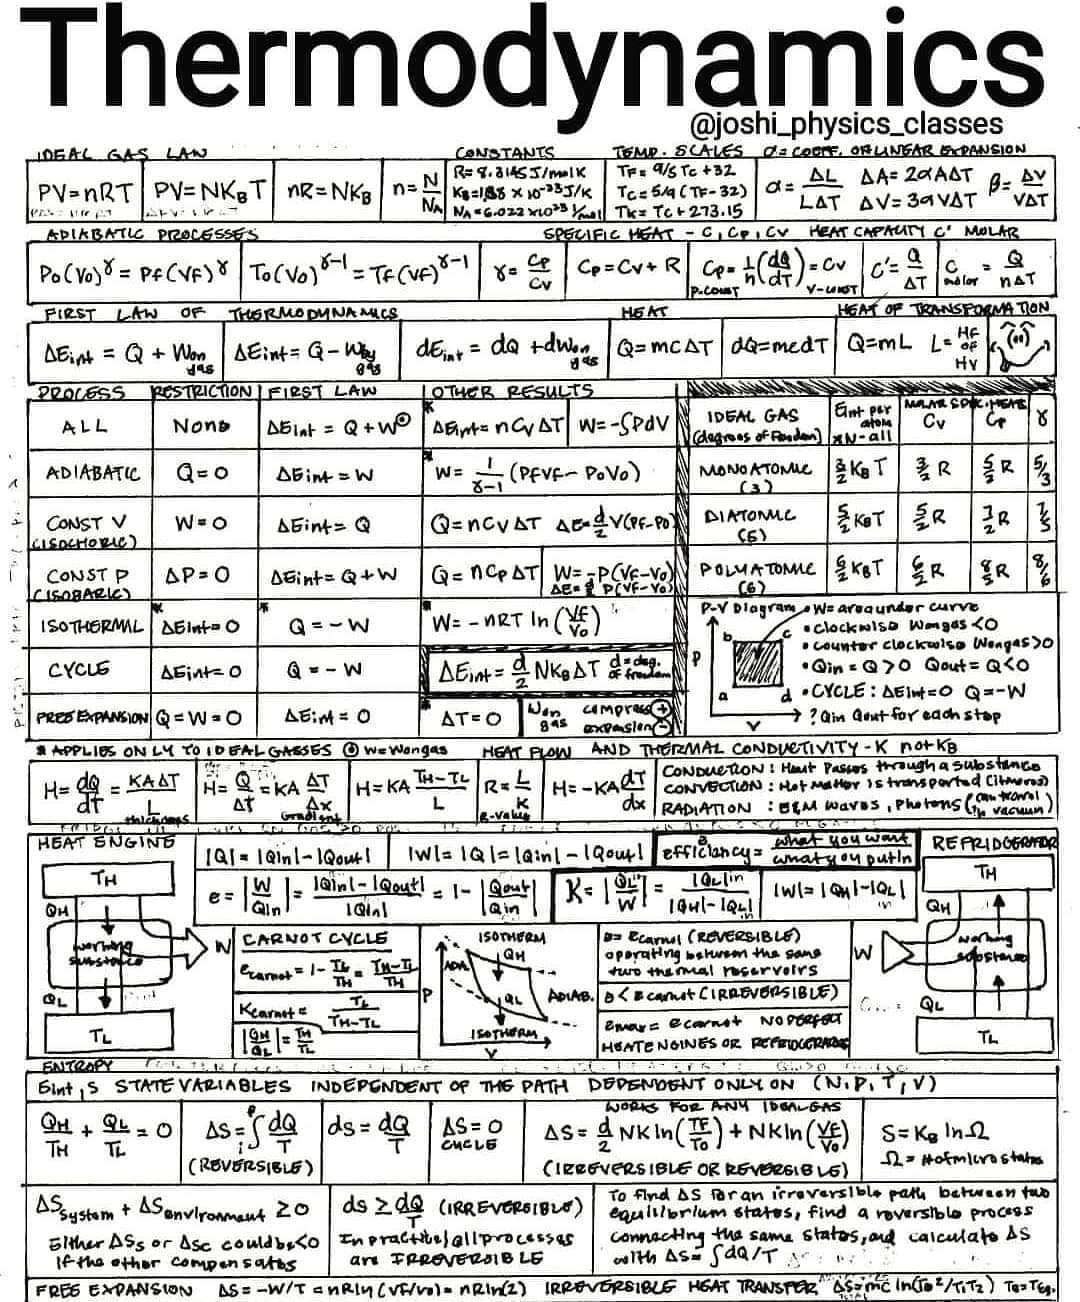 Thermodynamics
@joshi_physics_classes
IDEAL GAS LAW CONSTANTS TEMP. SCALES α = COEFF. OF LINEAR EXPANSION
PV=nRT PV=NKBT nR=NKB n=N/NA
R=8.3145 J/molK
NA=6.022×10²³ 1/mol
TF=9/5 Tc+32
Tc=5/9(TF-32)
TK=Tc+273.15
α=ΔL/LΔT ΔA=2αAΔT ΔV=3αVΔT β=ΔV/VΔT
ADIABATIC PROCESSES SPECIFIC HEAT - C, CP, CV HEAT CAPACITY C' MOLAR
P0(V0)^γ = PF(VF)^γ T0(V0)^γ-1 = TF(VF)^γ-1 γ=CP/CV CP=CV+R CP=1/n(dQ/dT)=CV P-CONST V-CONST C'=Q/ΔT C molar = Q/nΔT
FIRST LAW OF THERMODYNAMICS HEAT HEAT OF TRANSFORMATION
ΔEint = Q + Won gas ΔEint = Q - Wby gas dEint = dQ + dWon gas Q=mcΔT dQ=mcdT Q=mL L= HF OF HV
PROCESS RESTRICTION FIRST LAW OTHER RESULTS
ALL None ΔEint = Q+W⊙ *ΔEint=nCVΔT W=-∫PdV
ADIABATIC Q=0 ΔEint=W *W= 1/γ-1 (PFVF-P0V0)
CONST V (ISOCHORIC) W=0 ΔEint=Q Q=nCVΔT ΔE=d/2 V(PF-P0)
CONST P (ISOBARIC) ΔP=0 ΔEint=Q+W Q=nCPΔT W=-P(VF-V0) ΔE=d/2 P(VF-V0)
ISOTHERMAL *ΔEint=0 *Q=-W *W=-nRT ln(VF/V0)
CYCLE ΔEint=0 Q=-W ΔEint=d/2 NKBΔT d=deg. of freedom
FREE EXPANSION Q=W=0 ΔEint=0 *ΔT=0 Won gas compress + expansion -
IDEAL GAS (degrees of Freedom) Eint per atom ×N-all MOLAR SPEC. HEAT CV CP γ
MONOATOMIC (3) 3/2 KBT 3/2 R 5/2 R 5/3
DIATOMIC (5) 5/2 KBT 5/2 R 7/2 R 7/5
POLYATOMIC (6) 6/2 KBT 6/2 R 8/2 R 8/6
P-V Diagram • W=area under curve
• clockwise Wongas<0
• counter clockwise Wongas>0
• Qin=Q>0 Qout=Q<0
• CYCLE: ΔEint=0 Q=-W
? Qin Qout for each step
P b c a d V
* APPLIES ONLY TO IDEAL GASSES ⊙ W=Wongas HEAT FLOW AND THERMAL CONDUCTIVITY - K not KB
H=dQ/dt=KAΔT/L thickness H=Q/Δt=KA ΔT/Δx Gradient H=KA TH-TL/L R=L/K R-value H=-KA dT/dx
CONDUCTION: Heat Passes through a substance
CONVECTION: Hot Matter is transported
RADIATION: E&M waves, Photons (can travel in vacuum)
HEAT ENGINE |Q|=|Qin|-|Qout| |W|=|Q|=|Qin|-|Qout| efficiancy= what you want/what you put in REFRIDGERATOR
e=|W/Qin|=|Qin|-|Qout|/|Qin|=1-|Qout/Qin| K=|QL/W|=|QL|in/|QH|-|QL| |W|=|QH|-|QL|in
TH QH working substance W QL TL
CARNOT CYCLE
ecarnot=1-TL/TH=TH-TL/TH
Kcarnot=TL/TH-TL
|QH/QL|=TH/TL
P ISOTHERM QH ADIA. QL ADIAB. ISOTHERM V
e=ecarnot (REVERSIBLE)
operating between the same
two thermal reservoirs
e<ecarnot (IRREVERSIBLE)
emax=ecarnot NO PERFECT
HEAT ENGINES OR REFRIDGERATORS
TH QH W working substance QL TL
ENTROPY
Eint, S STATE VARIABLES INDEPENDENT OF THE PATH DEPENDENT ONLY ON (N,P,T,V)
QH/TH + QL/TL = 0 ΔS=∫dQ/T (REVERSIBLE) ds=dQ/T ΔS=0 CYCLE
WORKS FOR ANY IDEAL GAS
ΔS=d/2 NK ln(TF/T0)+NK ln(VF/V0)
(IRREVERSIBLE OR REVERSIBLE)
S=KB lnΩ
Ω=# of microstates
ΔSsystem + ΔSenvironment ≥0
Either ΔSs or ΔSe could be<0
if the other compensates
ds≥dQ/T (IRREVERSIBLE)
In practice, all processes
are IRREVERSIBLE
To find ΔS for an irreversible path between two
equilibrium states, find a reversible process
connecting the same states, and calculate ΔS
with ΔS=∫dQ/T
FREE EXPANSION ΔS=-W/T=nRln(VF/V0)=nRln(2) IRREVERSIBLE HEAT TRANSFER ΔS=mc ln(Te²/T1T2) Te=TEq.